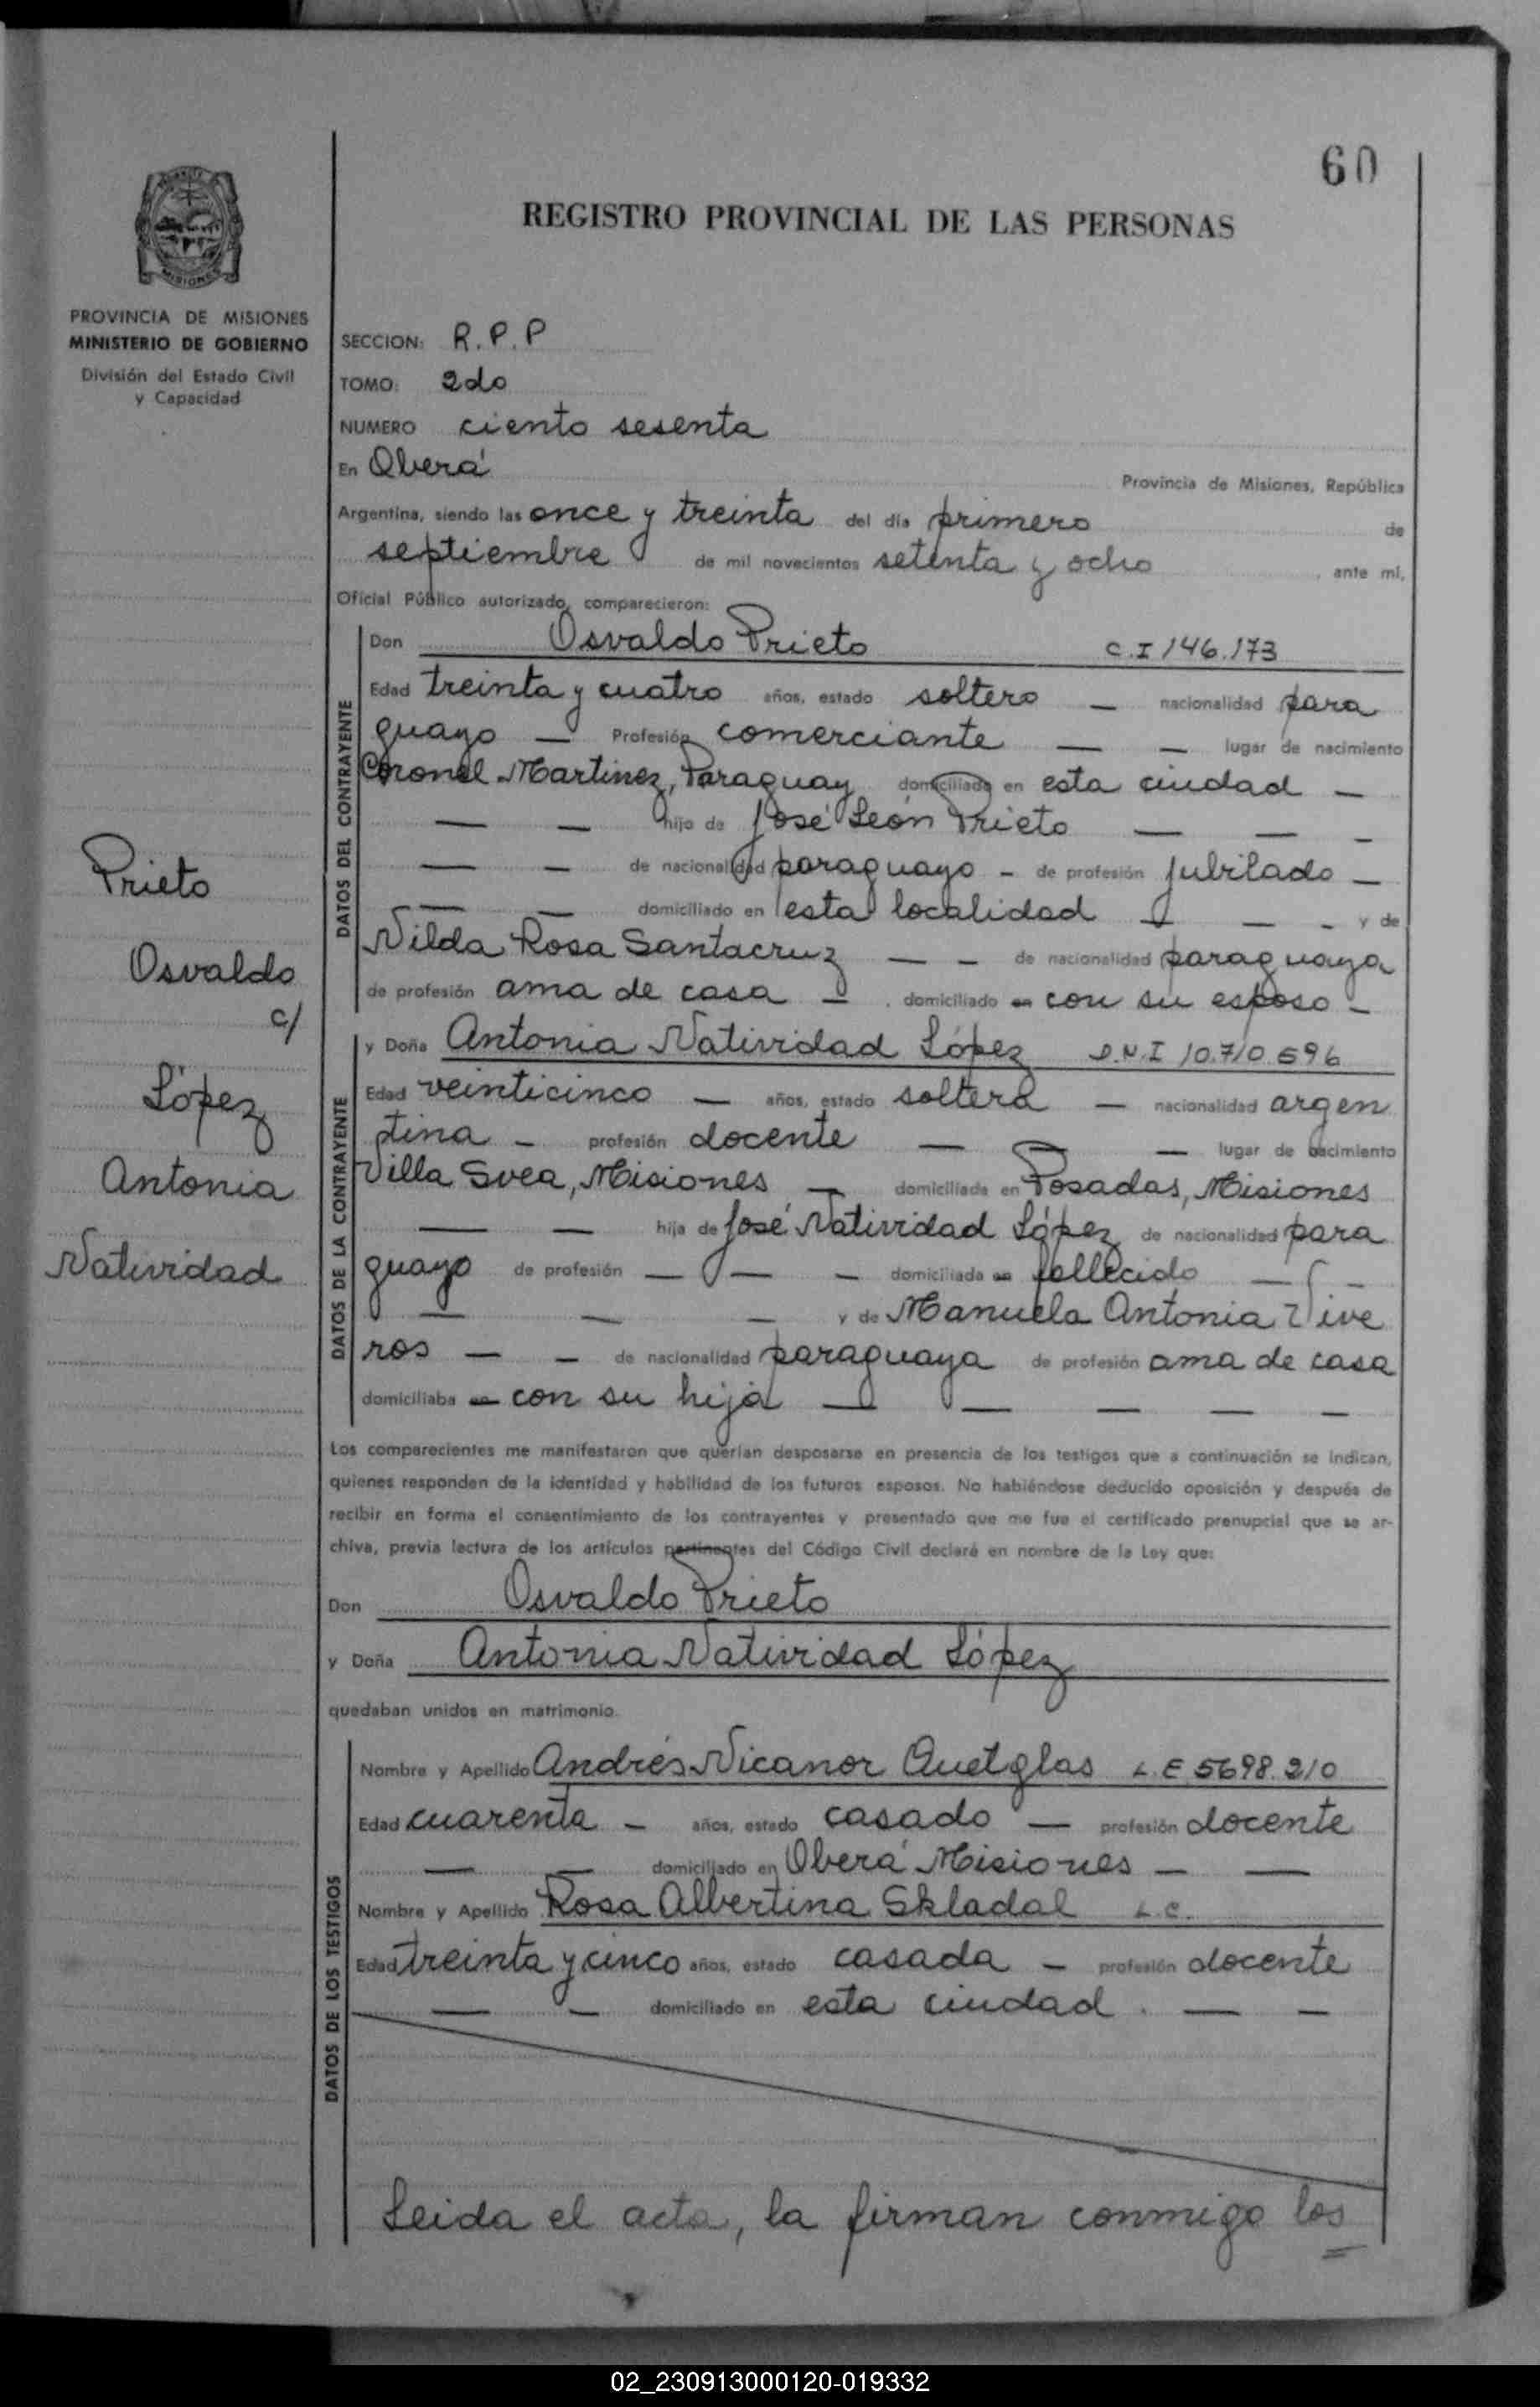 60
REGISTRO PROVINCIAL DE LAS PERSONAS
MISIONES
PROVINCIA DE MISIONES
MINISTERIO DE GOBIERNO
División del Estado Civil
y Capacidad
SECCION: R.P.P
TOMO: 2do
NUMERO ciento sesenta
En Oberá Provincia de Misiones, República
Argentina, siendo las once y treinta del día primero de
septiembre de mil novecientos setenta y ocho, ante mí,
Oficial Público autorizado, comparecieron:
DATOS DEL CONTRAYENTE
Don Osvaldo Prieto C.I 146.173
Edad treinta y cuatro años, estado soltero — nacionalidad para
guayo — Profesión comerciante — — lugar de nacimiento
Coronel Martinez, Paraguay domiciliado en esta ciudad —
— — hijo de José León Prieto — — -
— — de nacionalidad paraguayo - de profesión jubilado —
— — domiciliado en esta localidad — — - y de
Nilda Rosa Santacruz — — de nacionalidad paraguaya
de profesión ama de casa — . domiciliado en con su esposo -
Prieto
Osvaldo
c/
López
Antonia
Natividad
DATOS DE LA CONTRAYENTE
y Doña Antonia Natividad López D.N.I 10.710.596
Edad veinticinco — años, estado soltera — nacionalidad argen
tina - profesión docente — — — lugar de nacimiento
Villa Svea, Misiones — domiciliada en Posadas, Misiones
— — hija de José Natividad López de nacionalidad para
guayo de profesión — — — domiciliada en fallecido — -
— — — y de Manuela Antonia Vive
ros — — de nacionalidad paraguaya de profesión ama de casa
domiciliaba en con su hija — — — — —
Los comparecientes me manifestaron que querían desposarse en presencia de los testigos que a continuación se indican,
quienes responden de la identidad y habilidad de los futuros esposos. No habiéndose deducido oposición y después de
recibir en forma el consentimiento de los contrayentes y presentado que me fue el certificado prenupcial que se ar-
chiva, previa lectura de los artículos pertinentes del Código Civil declaré en nombre de la Ley que:
Don Osvaldo Prieto
y Doña Antonia Natividad López
quedaban unidos en matrimonio.
DATOS DE LOS TESTIGOS
Nombre y Apellido Andrés Nicanor Quetglas L.E 5698.210
Edad cuarenta — años, estado casado — profesión docente
— — domiciliado en Oberá Misiones — —
Nombre y Apellido Rosa Albertina Skladal L.C.
Edad treinta y cinco años, estado casada — profesión docente
— — domiciliado en esta ciudad. — —
Leida el acta, la firman conmigo los
02_230913000120-019332